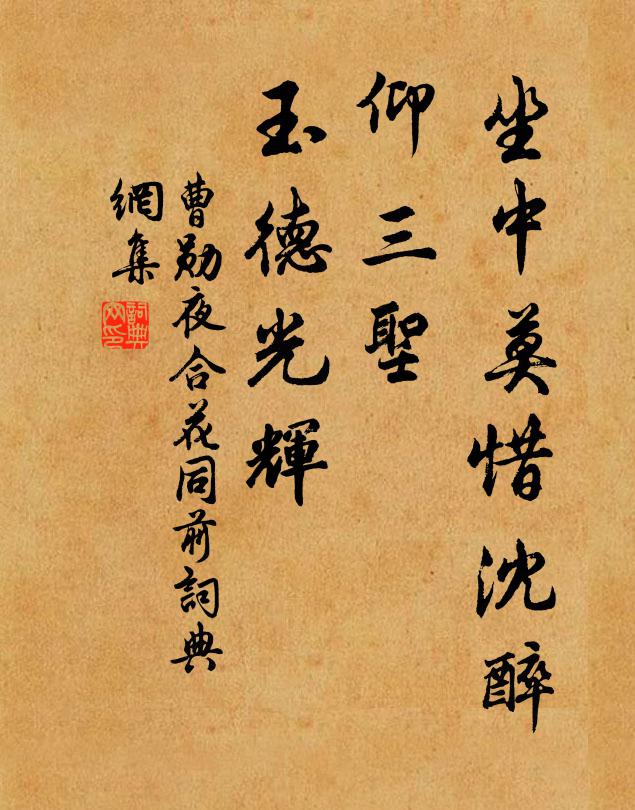 坐中莫惜沈醉
仰三聖
玉德光輝
曹勛夜合花同前詞典
網集
詞典
網印